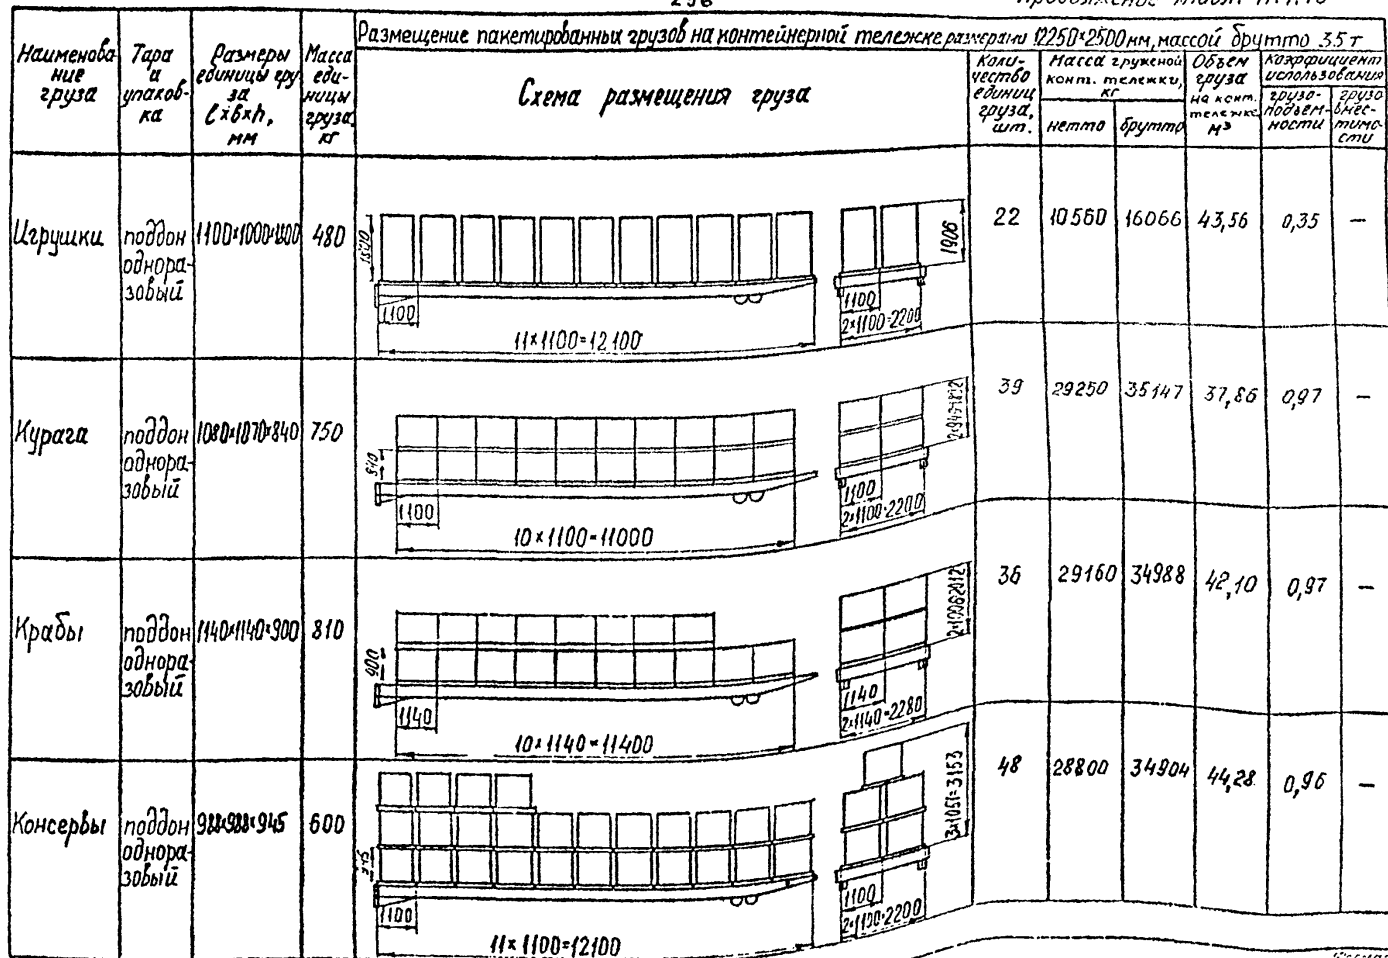 296
Размещение пакетированных грузов на контейнерной тележке размерами 12250×2500 мм, массой брутто 35 т
Наименова-
ние
груза
Тара
и
упаков-
ка
Размеры
единицы гру
за
l×b×h,
мм
Масса
еди-
ницы
груза,
кг
Схема размещения груза
Коли-
чество
единиц
груза,
шт.
Масса груженой
конт. тележки,
кг
нетто
брутто
Объем
груза
на конт.
тележке
м³
Коэффициент
использования
грузо-
подъем-
ности
грузо
вмес-
тимо-
сти
Игрушки
поддон
однора-
зовый
1100×1000×1800
480
1100
11×1100=12100
1100
2×1100=2200
1906
22
10560
16066
43,56
0,35
—
Курага
поддон
однора-
зовый
1080×1070×840
750
840
1100
10×1100=11000
1100
2×1100=2200
39
29250
35147
37,86
0,97
—
Крабы
поддон
однора-
зовый
1140×1140×900
810
900
1140
10×1140=11400
1140
2×1140=2280
36
29160
34988
42,10
0,97
—
Консервы
поддон
однора-
зовый
988×988×945
600
945
1100
11×1100=12100
1100
2×1100=2200
3×1051=3153
48
28800
34904
44,28
0,96
—